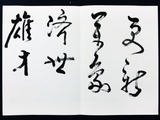 更新
万象
济世
雄才